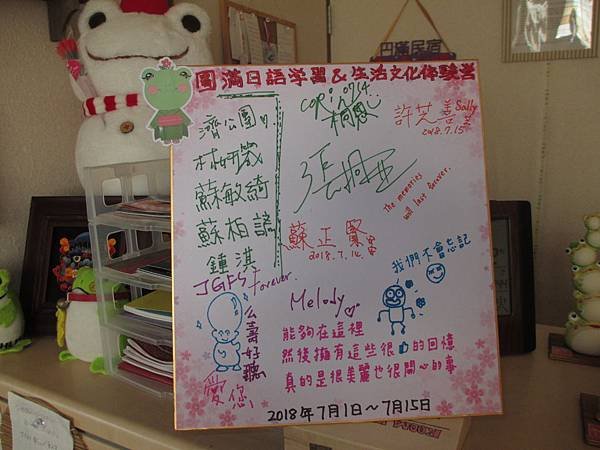 円満民宿
圓滿日語学習&生活文化体験営
濟公園
林妍箴
蘇敏綺
蘇柏諺
鍾淇
JGFS Forever.
么壽好聽
愛您
許芝善 Sally
2018.7.15
The memories
will last forever.
蘇正
2018.7.14.
我們不會忘記
Melody
能夠在這裡
然後擁有這些很的回憶
真的是很美麗也很開心的事
2018年7月1日~7月15日